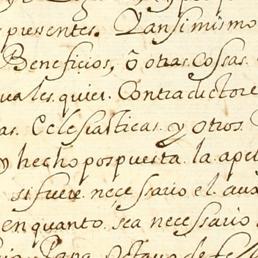 presentes. Y ansi mismo
Beneficios, ô otras Cossas
quales quier Contradictore
as. Eclesiasticas y otros
y hecho pospuesta la apel
si fuere necessario el aux
enquanto sea necessario
Octavo de